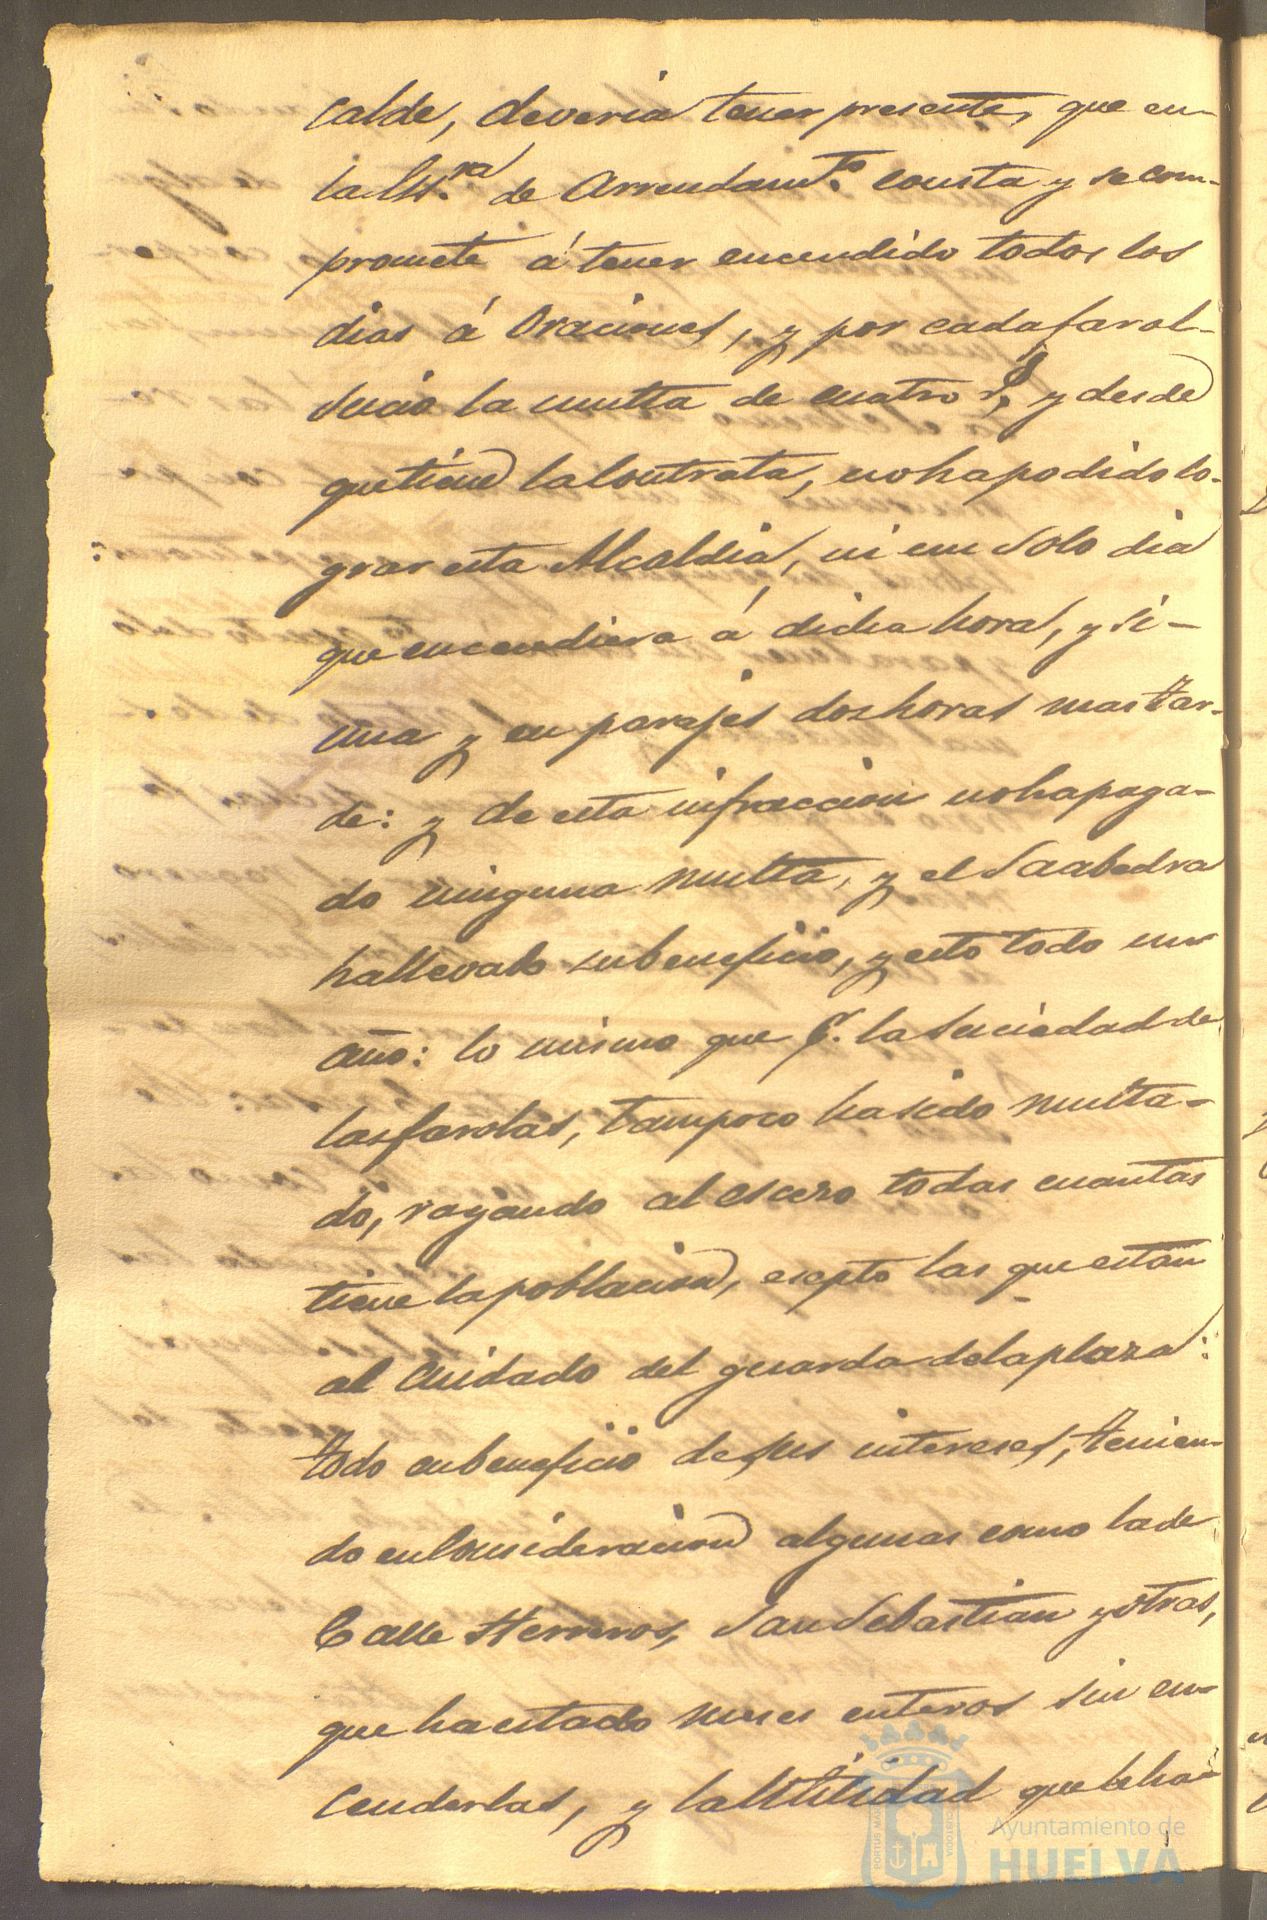 calde, deveria tener presente, que en-
la Es.ra de Arrendam.to consta y se com-
promete á tener encendido todos los
dias á Oraciones, y por cada farol-
sucio la multa de cuatro r.s, y desde
que tiene la Contrata, no ha podido lo-
grar esta Alcaldia, ni un solo dia
que encendiera á dicha hora, y si-
una y en parajes dos horas mas tar-
de: y de esta infraccion no ha paga-
do ninguna multa, y el Saabedra
ha llevado su beneficio, y esto todo un
año: lo mismo que p.r la suciedad de
las farolas, tampoco ha sido multa-
do, rayando al escero todas cuantas
tiene la poblacion, esepto las que estan
al Cuidado del guarda de la plaza:
todo en beneficio de sus intereses, tenien-
do en Consideracion algunas como la de
Calle Herreros, San Sebastian y otras,
que ha estado meses enteros sin en-
cenderlas, y la Utilidad que le ha-
Ayuntamiento de
HUELVA